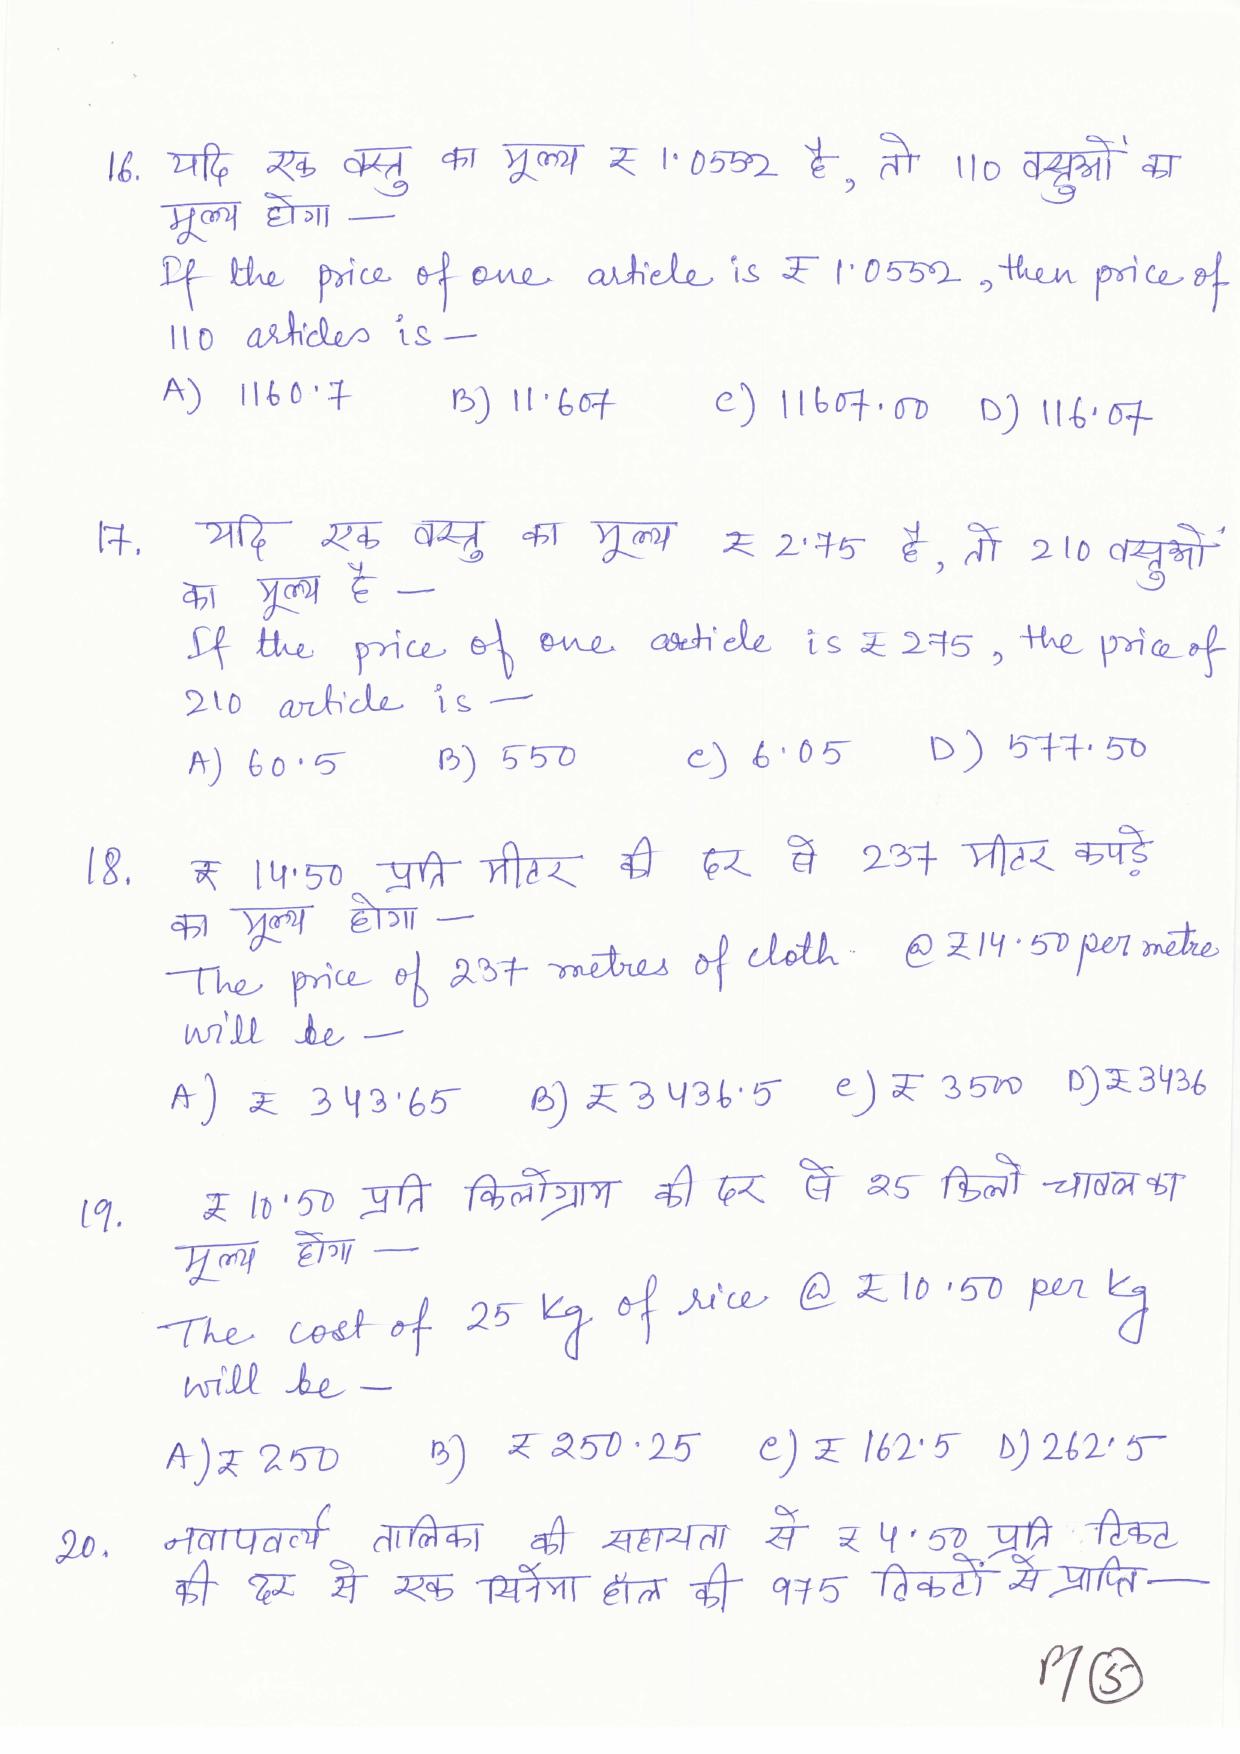 16. यदि एक वस्तु का मूल्य ₹ 1.0552 है, तो 110 वस्तुओं का
मूल्य होगा —
If the price of one article is ₹ 1.0552, then price of
110 articles is —
A) 1160.7 B) 11.607 C) 11607.00 D) 116.07
17. यदि एक वस्तु का मूल्य ₹ 2.75 है, तो 210 वस्तुओं
का मूल्य है —
If the price of one article is ₹ 275, the price of
210 article is —
A) 60.5 B) 550 C) 6.05 D) 577.50
18. ₹ 14.50 प्रति मीटर की दर से 237 मीटर कपड़े
का मूल्य होगा —
The price of 237 metres of cloth @ ₹14.50 per metre
will be —
A) ₹ 343.65 B) ₹ 3436.5 C) ₹ 3500 D) ₹ 3436
19. ₹ 10.50 प्रति किलोग्राम की दर से 25 किलो चावल का
मूल्य होगा —
The cost of 25 Kg of rice @ ₹10.50 per Kg
will be —
A) ₹ 250 B) ₹ 250.25 C) ₹ 162.5 D) 262.5
20. नवापवर्त्य तालिका की सहायता से ₹ 4.50 प्रति टिकट
की दर से एक सिनेमा हॉल की 975 टिकटों से प्राप्ति —
P/5